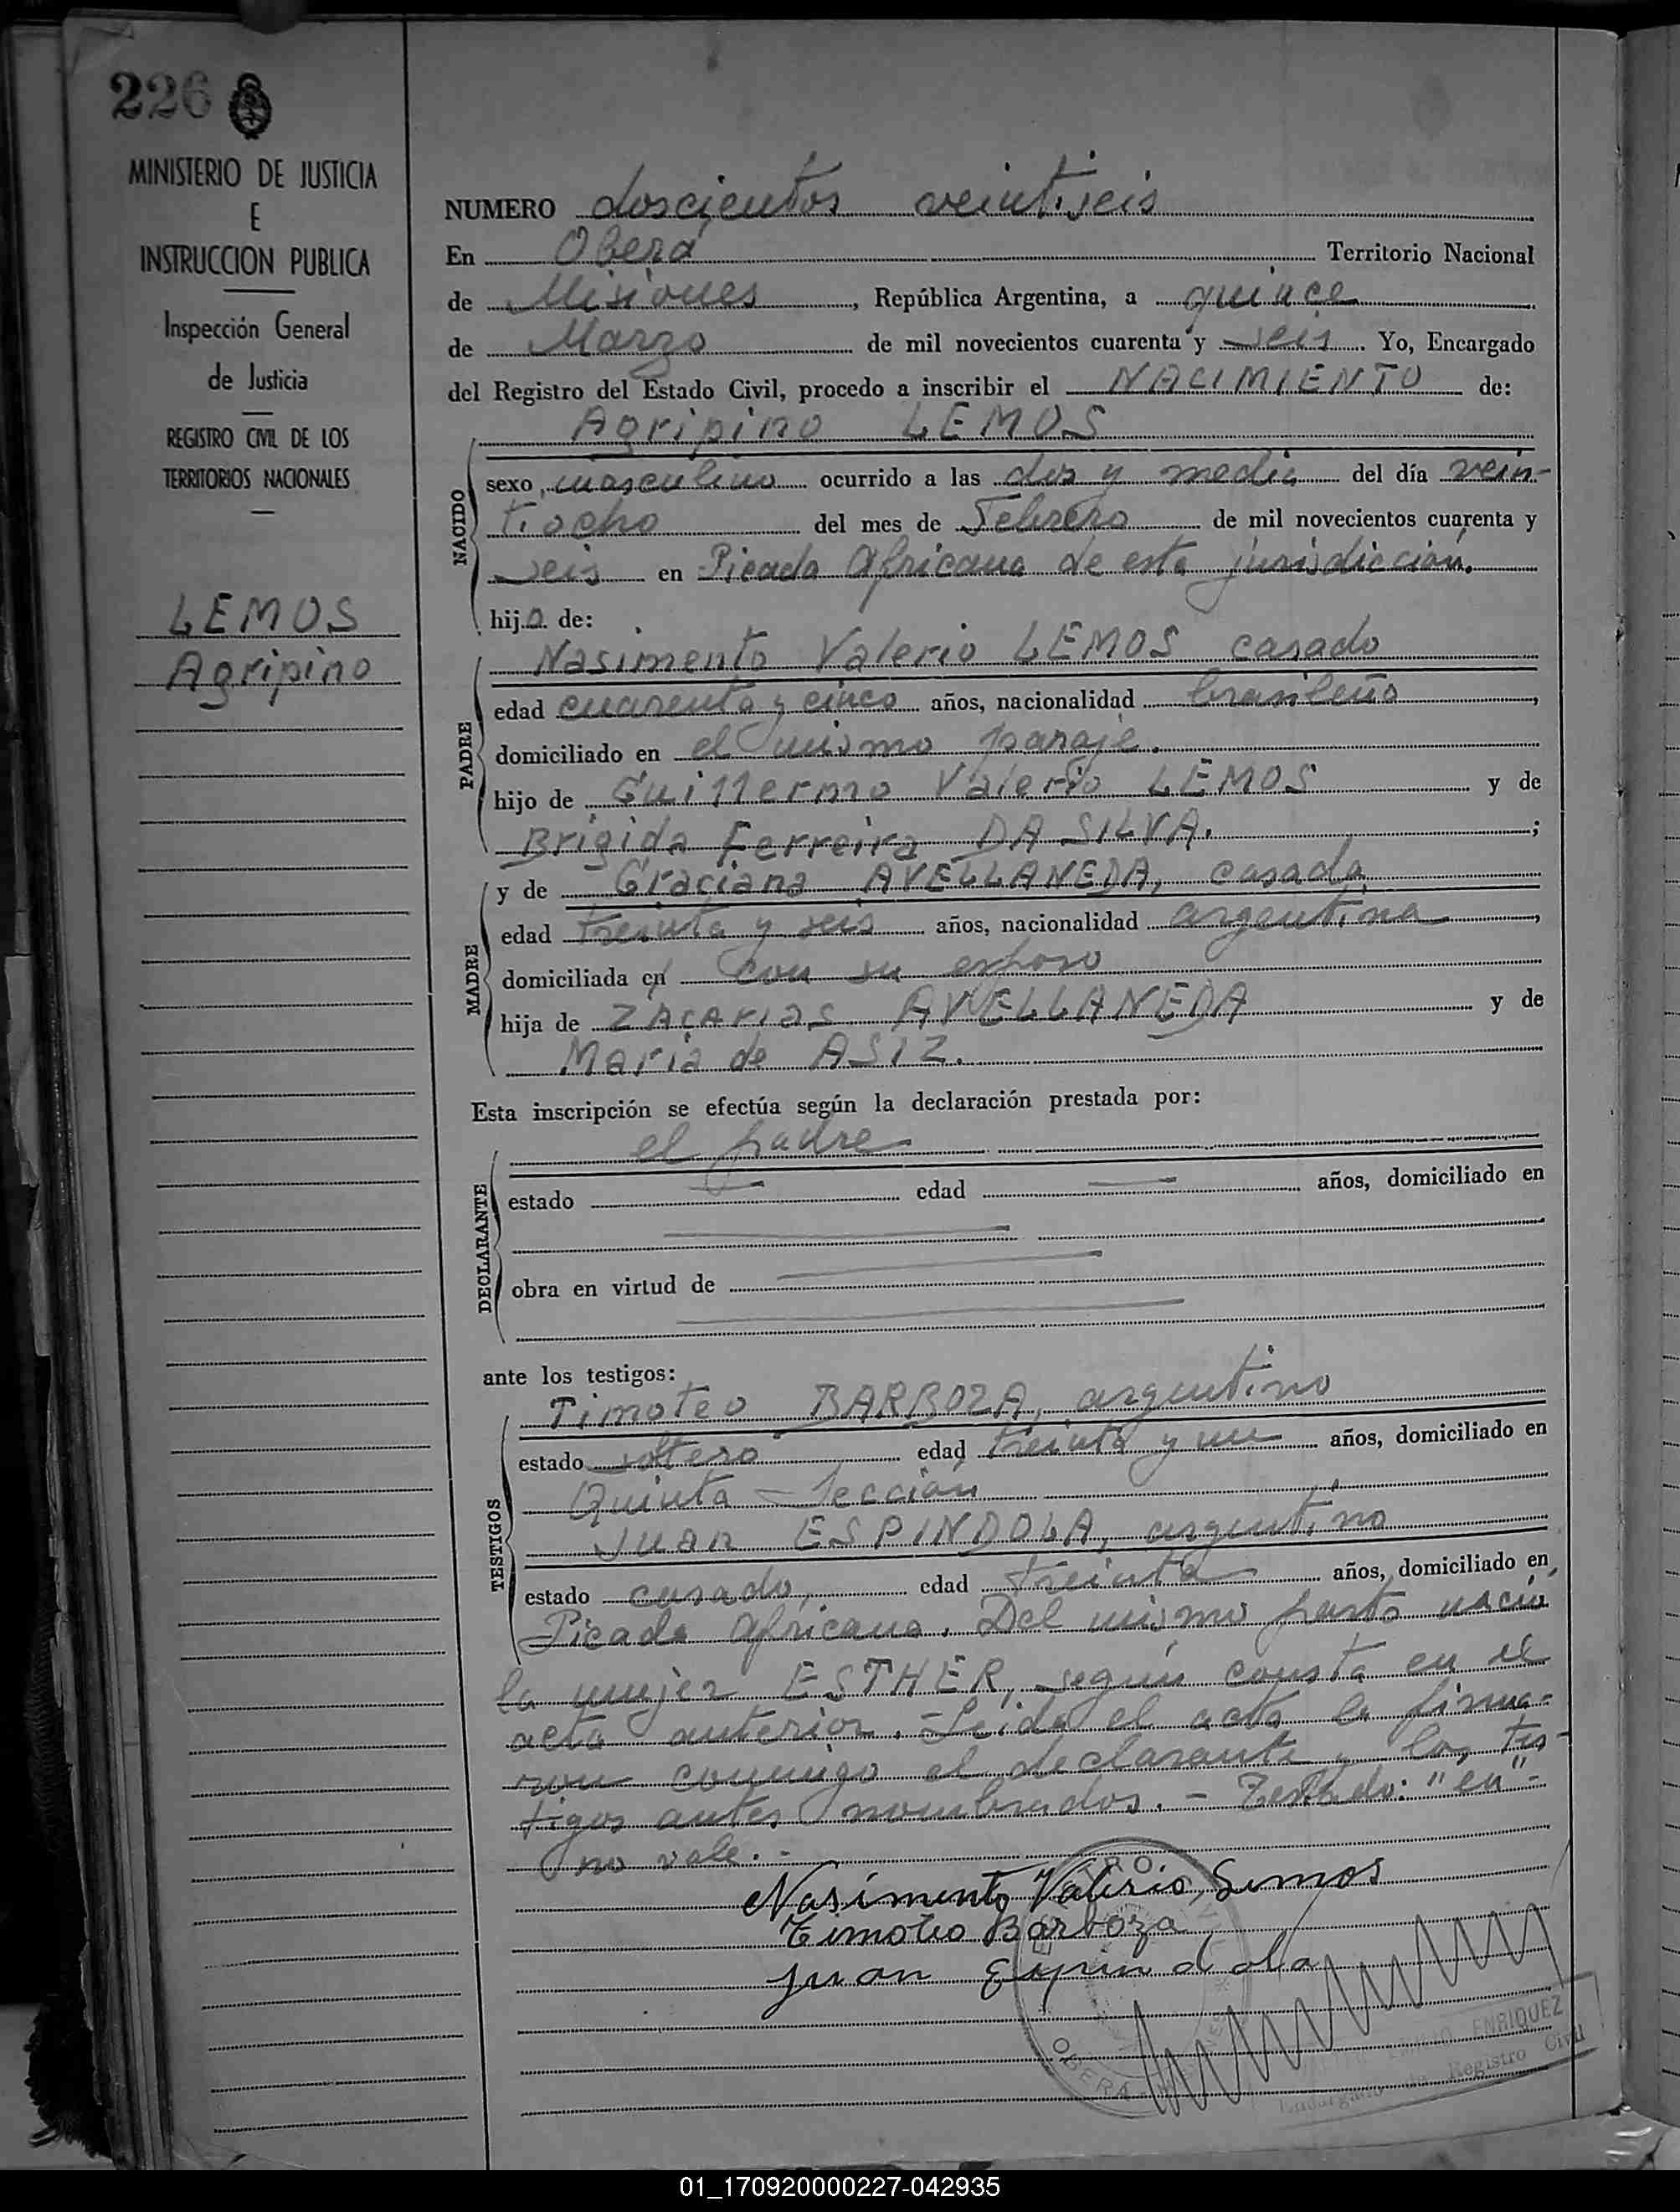 226
MINISTERIO DE JUSTICIA
E
INSTRUCCION PUBLICA
Inspección General
de Justicia
REGISTRO CIVIL DE LOS
TERRITORIOS NACIONALES
LEMOS
Agripino
NUMERO doscientos veintiseis
En Oberá Territorio Nacional
de Misiones, República Argentina, a quince
de Marzo de mil novecientos cuarenta y seis. Yo, Encargado
del Registro del Estado Civil, procedo a inscribir el NACIMIENTO de:
Agripino LEMOS
NACIDO
sexo masculino ocurrido a las dos y media del día vein-
tiocho del mes de Febrero de mil novecientos cuarenta y
seis en Picada Africana de esta jurisdicción.
hijo de:
PADRE
Nasimento Valerio LEMOS casado
edad cuarenta y cinco años, nacionalidad brasileño,
domiciliado en el mismo paraje.
hijo de Guillermo Valerio LEMOS y de
Brigida Ferreira DA SILVA.;
MADRE
y de Graciana AVELLANEDA, casada
edad treinta y seis años, nacionalidad argentina,
domiciliada en con su esposo
hija de Zacarias AVELLANEDA y de
Maria de ASIZ.
Esta inscripción se efectúa según la declaración prestada por:
el padre
DECLARANTE
estado edad años, domiciliado en
obra en virtud de
ante los testigos:
TESTIGOS
Timoteo BARBOZA, argentino
estado soltero edad treinta y un años, domiciliado en
Quinta Sección
Juan ESPINDOLA, argentino
estado casado, edad treinta años, domiciliado en
Picada Africana. Del mismo parto nació
la mujer ESTHER, según consta en el
acta anterior. - Leida el acta la firma-
ron conmigo el declarante y los tes-
tigos antes nombrados. - Testado: "en" -
no vale. -
Nasimento Valerio Lemos
Timoteo Barboza
Juan Espindola
OBERA
ENRIQUEZ
Encargado de Registro Civil
01_170920000227-042935